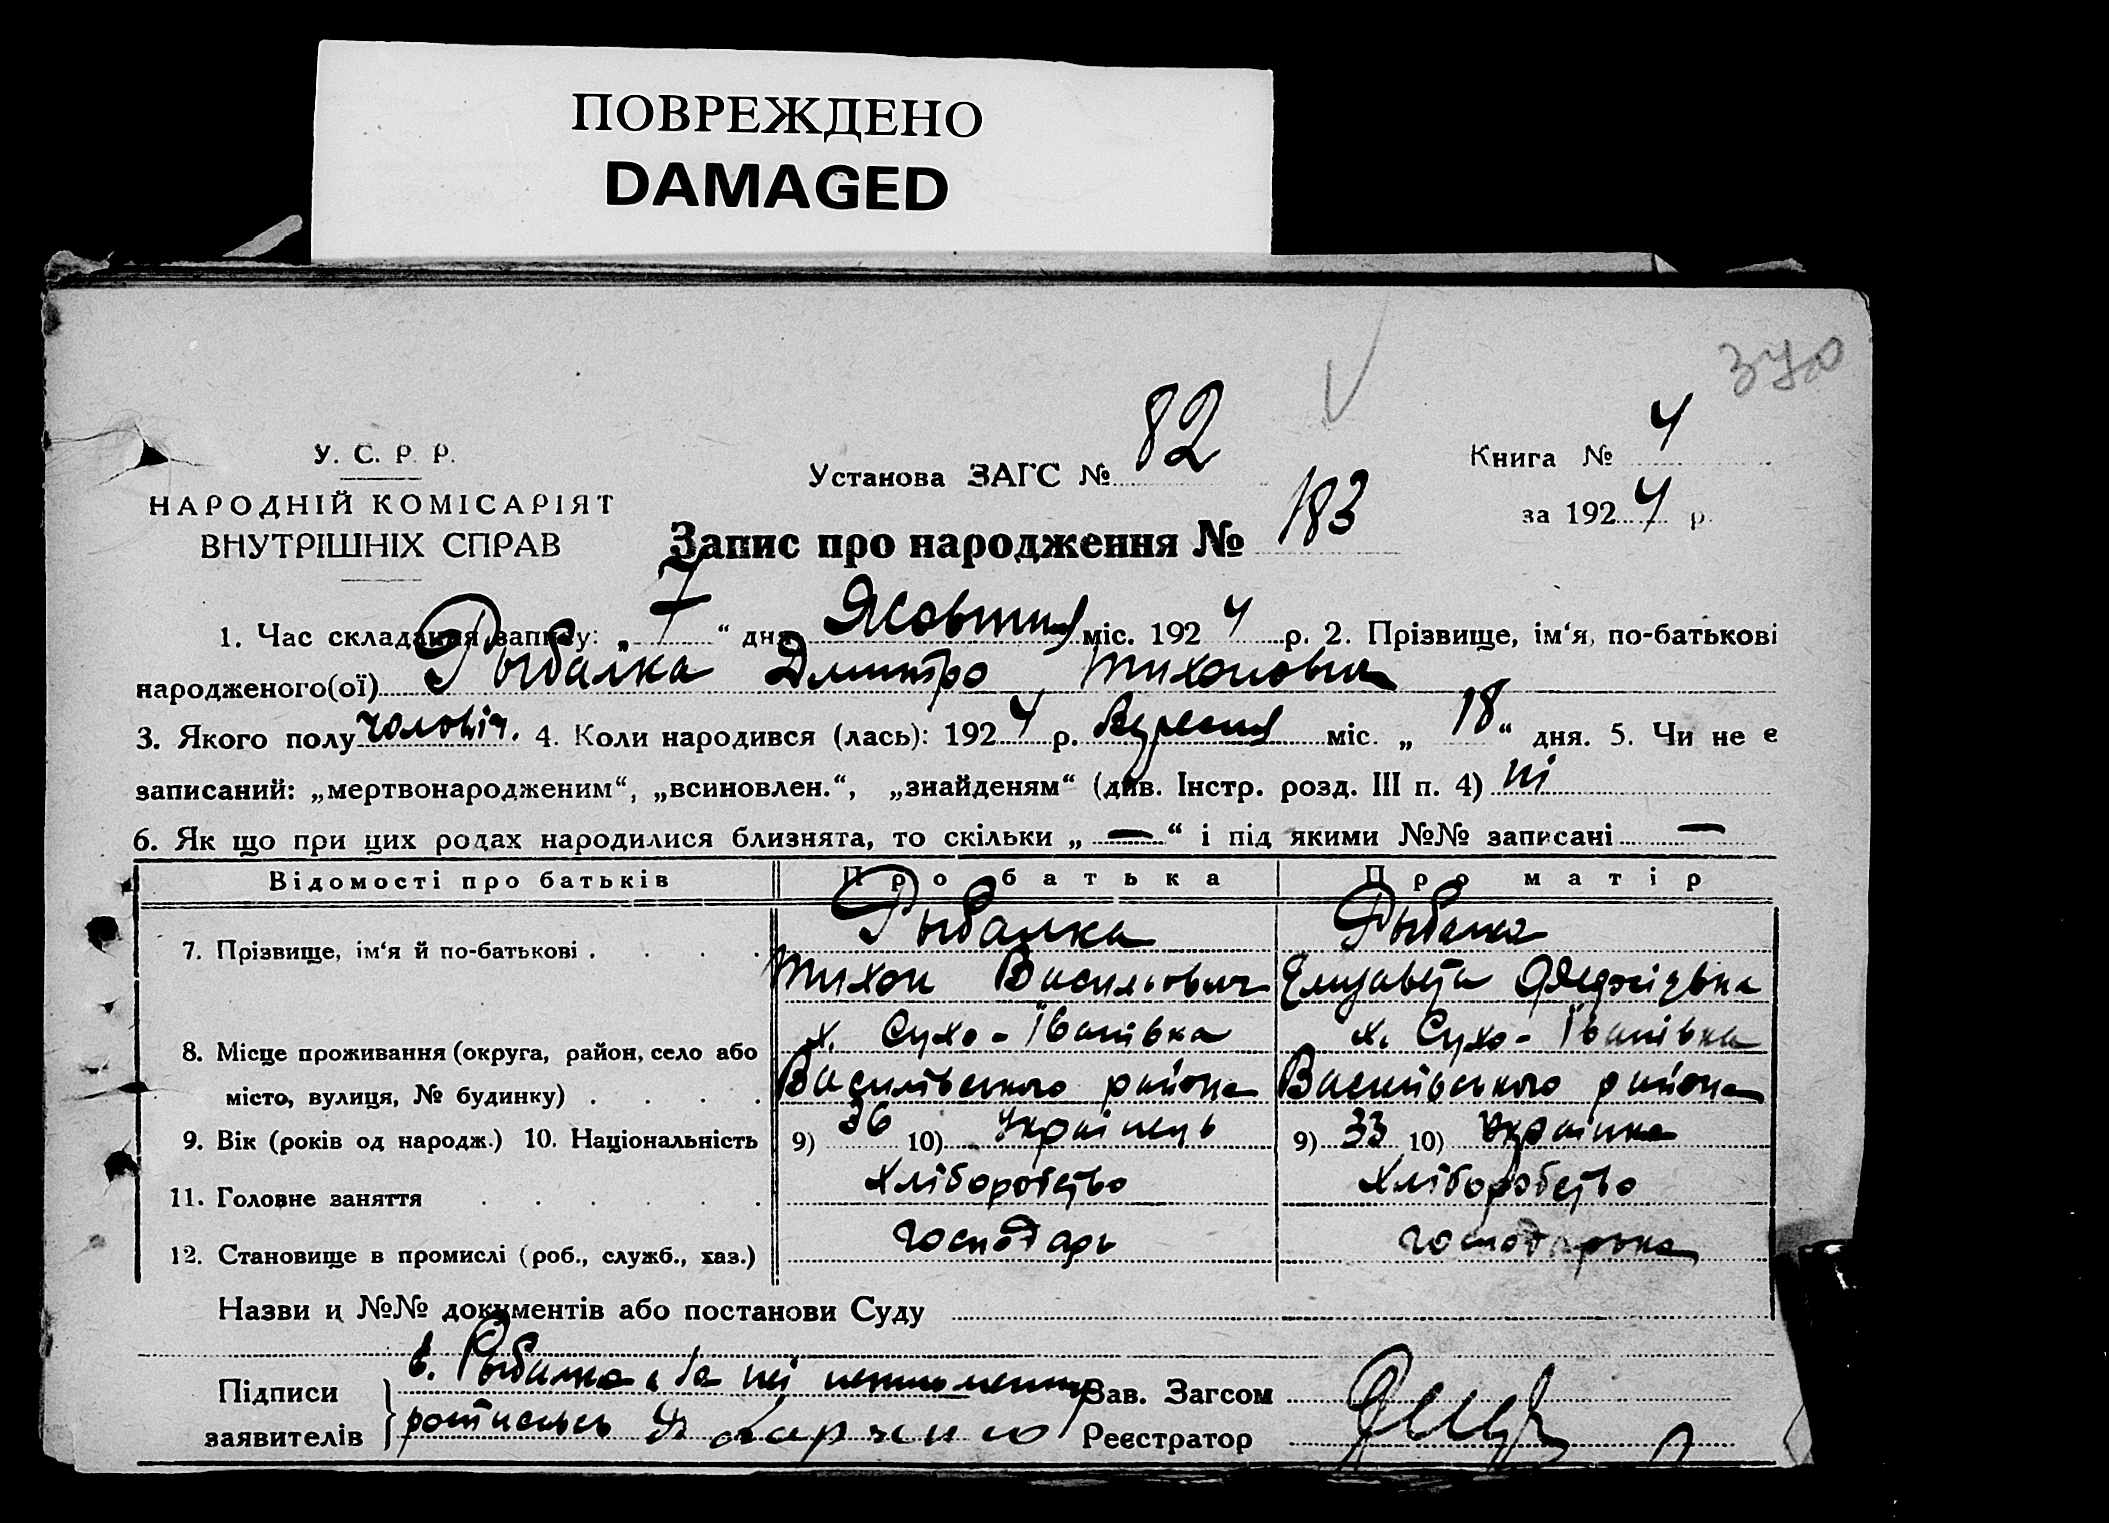 ПОВРЕЖДЕНО
DAMAGED
370
У. С. Р. Р.
НАРОДНІЙ КОМІСАРІЯТ
ВНУТРІШНІХ СПРАВ
Установа ЗАГС № 82
Книга № 4
за 1924 р.
Запис про народження № 183
1. Час складання запису: „ 7 “ дня Жовтня міс. 1924 р. 2. Прізвище, ім‘я, по-батькові
народженого(ої) Рыбалка Дмитро Тихонович
3. Якого полу чоловіч. 4. Коли народився (лась): 1924 р. Вересня міс. „ 18 “ дня. 5. Чи не є
записаний: „мертвонародженим“, „всиновлен.“, „знайденям“ (див. Інстр. розд. III п. 4) ні
6. Як що при цих родах народилися близнята, то скільки „ — “ і під якими №№ записані —
Відомості про батьків Про батька Про матір
7. Прізвище, ім‘я й по-батькові . . . . Рыбалка Рыбалка
Тихон Васильович Елизавета
8. Місце проживання (округа, район, село або х. Сухо-Іванівка х. Сухо-Іванівка
місто, вулиця, № будинку) . . . . Василівського района Василівського района
9. Вік (років од народж.) 10. Національність 9) 36 10) Українець 9) 33 10) Українка
11. Головне заняття . . . . . Хліборобство Хліборобство
12. Становище в промислі (роб., служб., хаз.) господарь господарька
Назви и №№ документів або постанови Суду
Підписи Е. Рыбалка а за неі Зав. Загсом
заявителів росписалсь Реєстратор